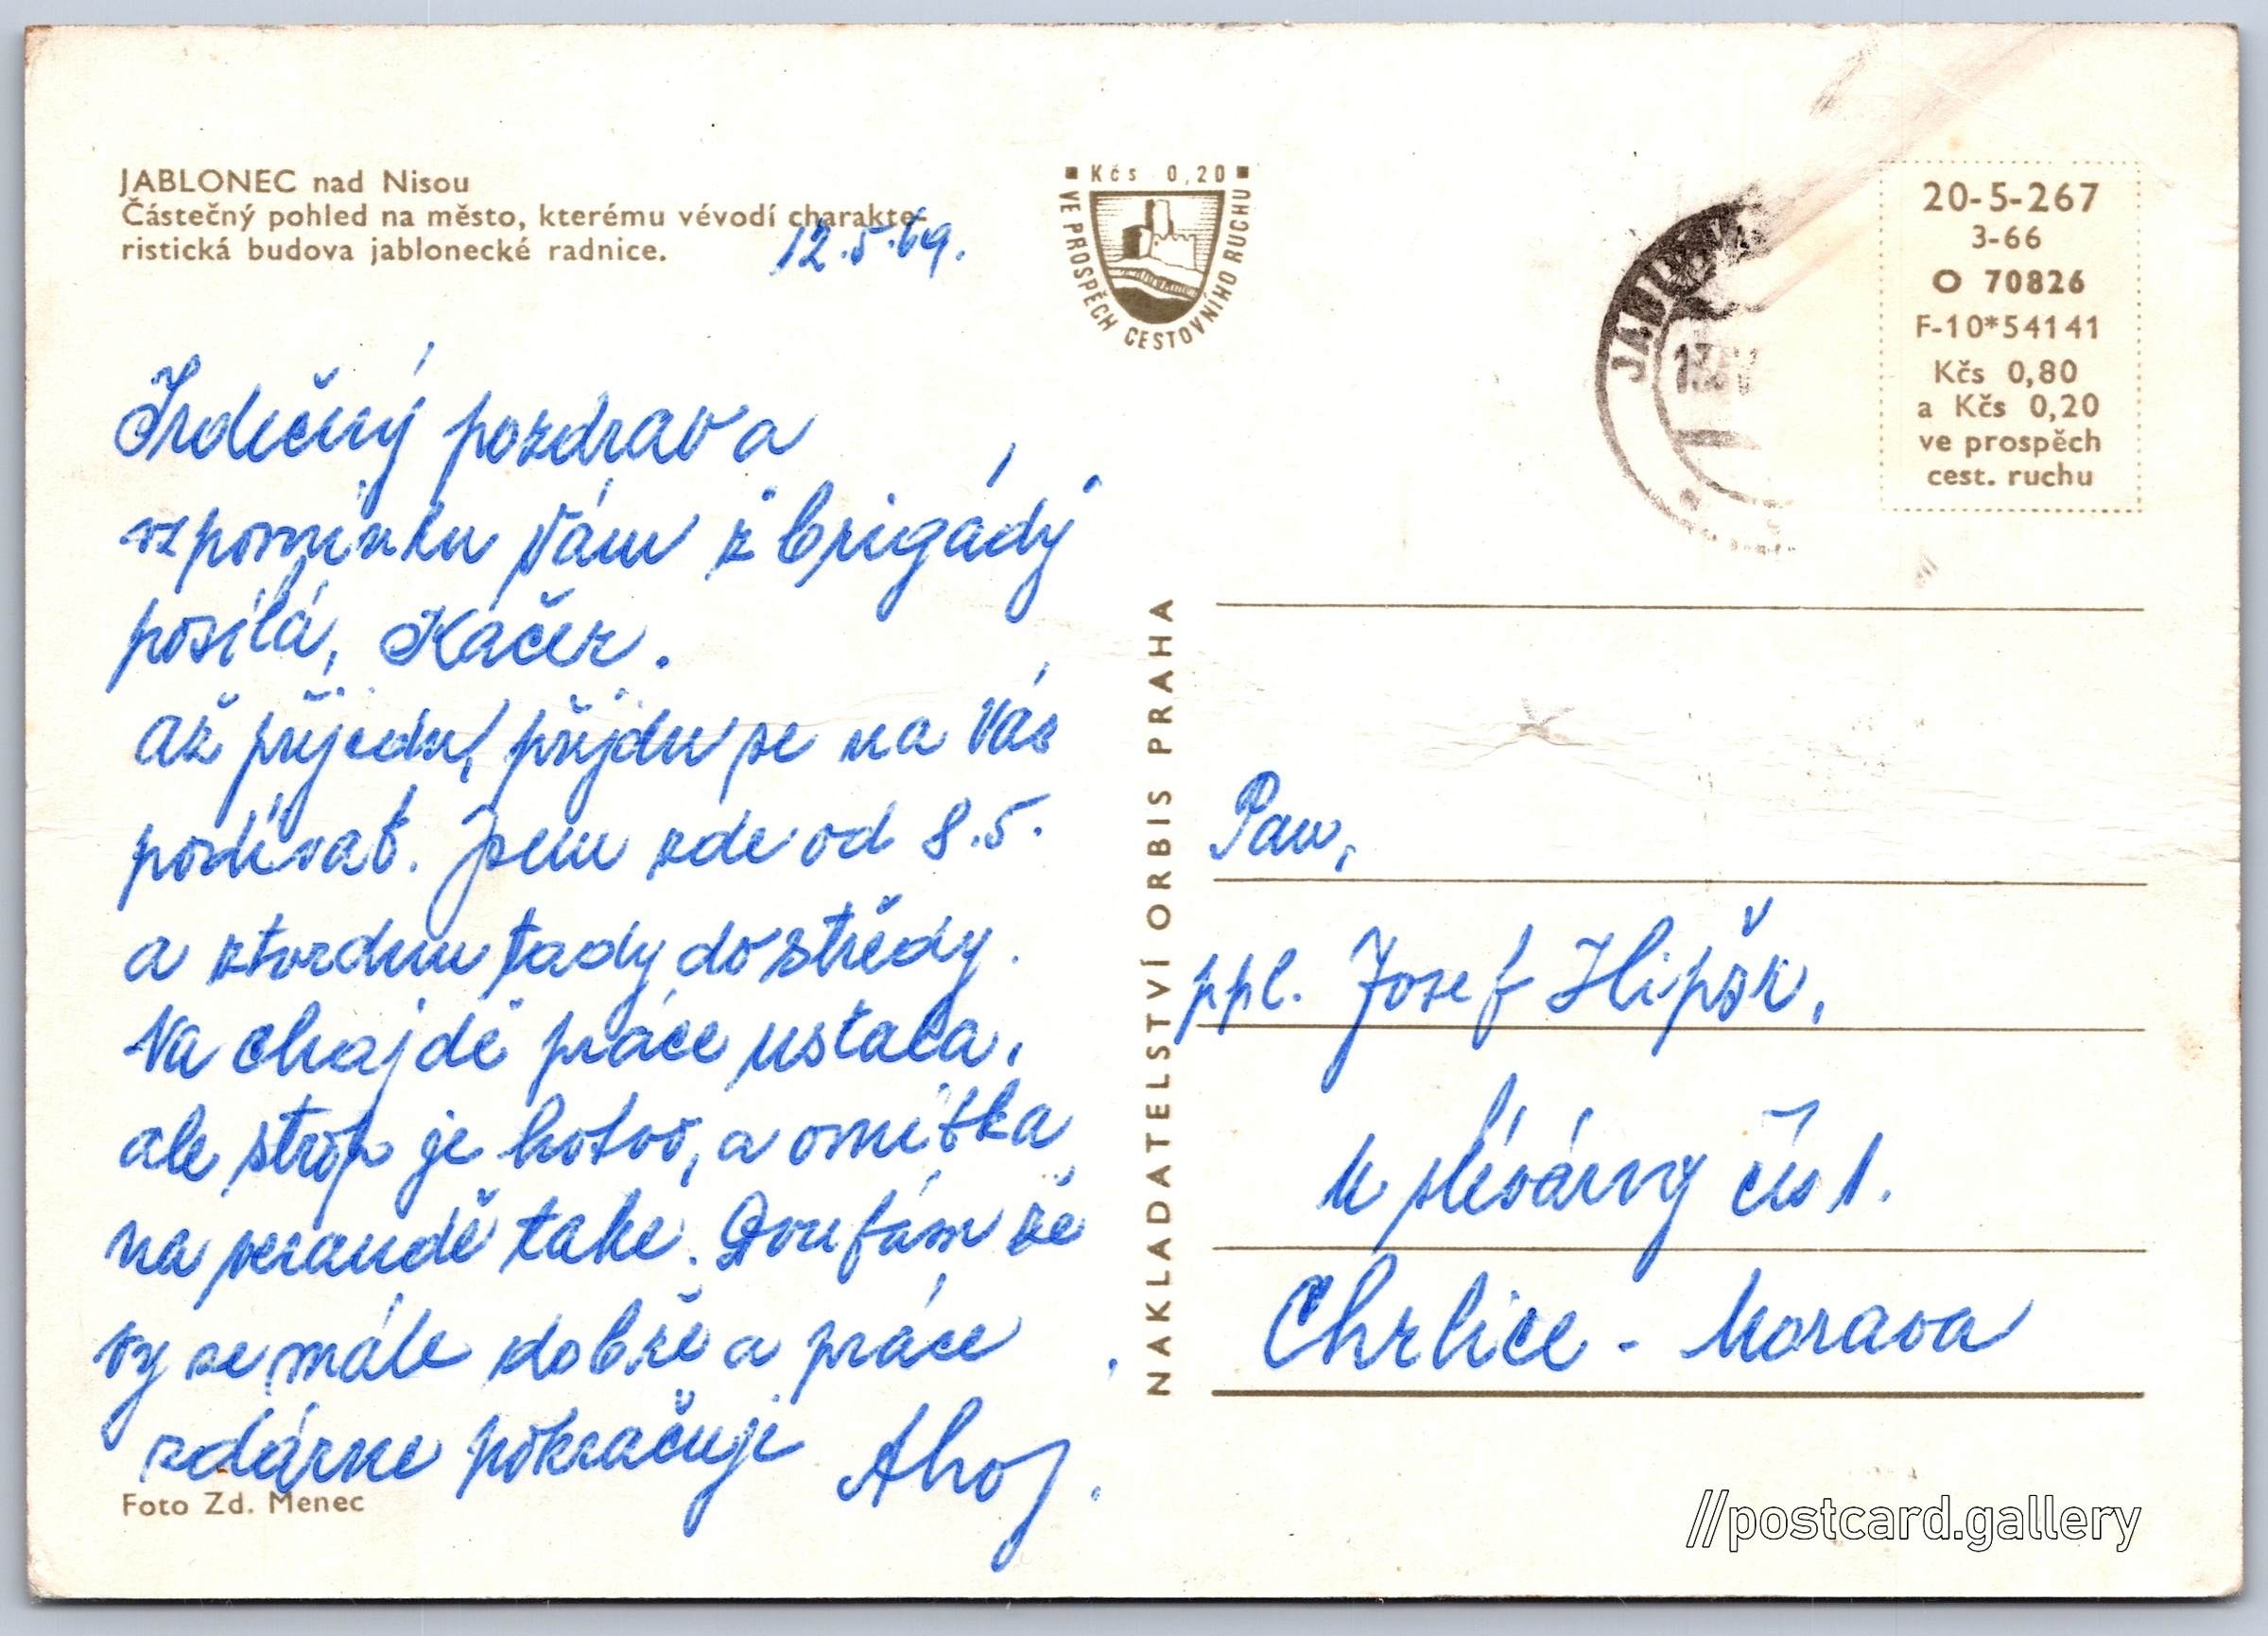 JABLONEC nad Nisou
Částečný pohled na město, kterému vévodí charakte-
ristická budova jablonecké radnice.
12.5.69.
Srdečný pozdrav a
vzpomínku Vám z brigády
posílá, Káčer.
až přijedu, přijdu se na Vás
podívat. Jsem zde od 8.5.
a ztvrdnu tady do středy.
Na chajdě práce ustala,
ale strop je hotov, a omítka
na verandě také. Doufám že
vy se máte dobře a práce
zdárne pokračuje Ahoj.
Foto Zd. Menec
Kčs 0,20
VE PROSPĚCH CESTOVNÍHO RUCHU
NAKLADATELSTVÍ ORBIS PRAHA
20-5-267
3-66
O 70826
F-10*54141
Kčs 0,80
a Kčs 0,20
ve prospěch
cest. ruchu
Pan,
ppl. Josef
U slévárny čís 1.
Chrlice - Morava
//postcard.gallery